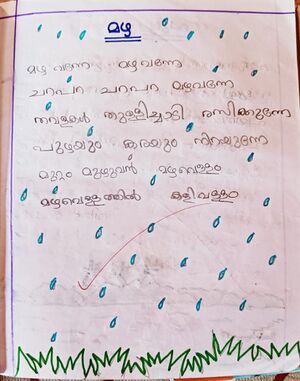 മഴ
മഴ വന്നേ മഴവന്നേ
ചറപറ ചറപറ മഴവന്നേ
തവളകൾ തുള്ളിച്ചാടി രസിക്കുന്നേ
പുഴയും കരയും നിറയുന്നേ
മുറ്റം മുഴുവൻ മഴവെള്ളം
മഴവെള്ളത്തിൽ കളിവള്ളം